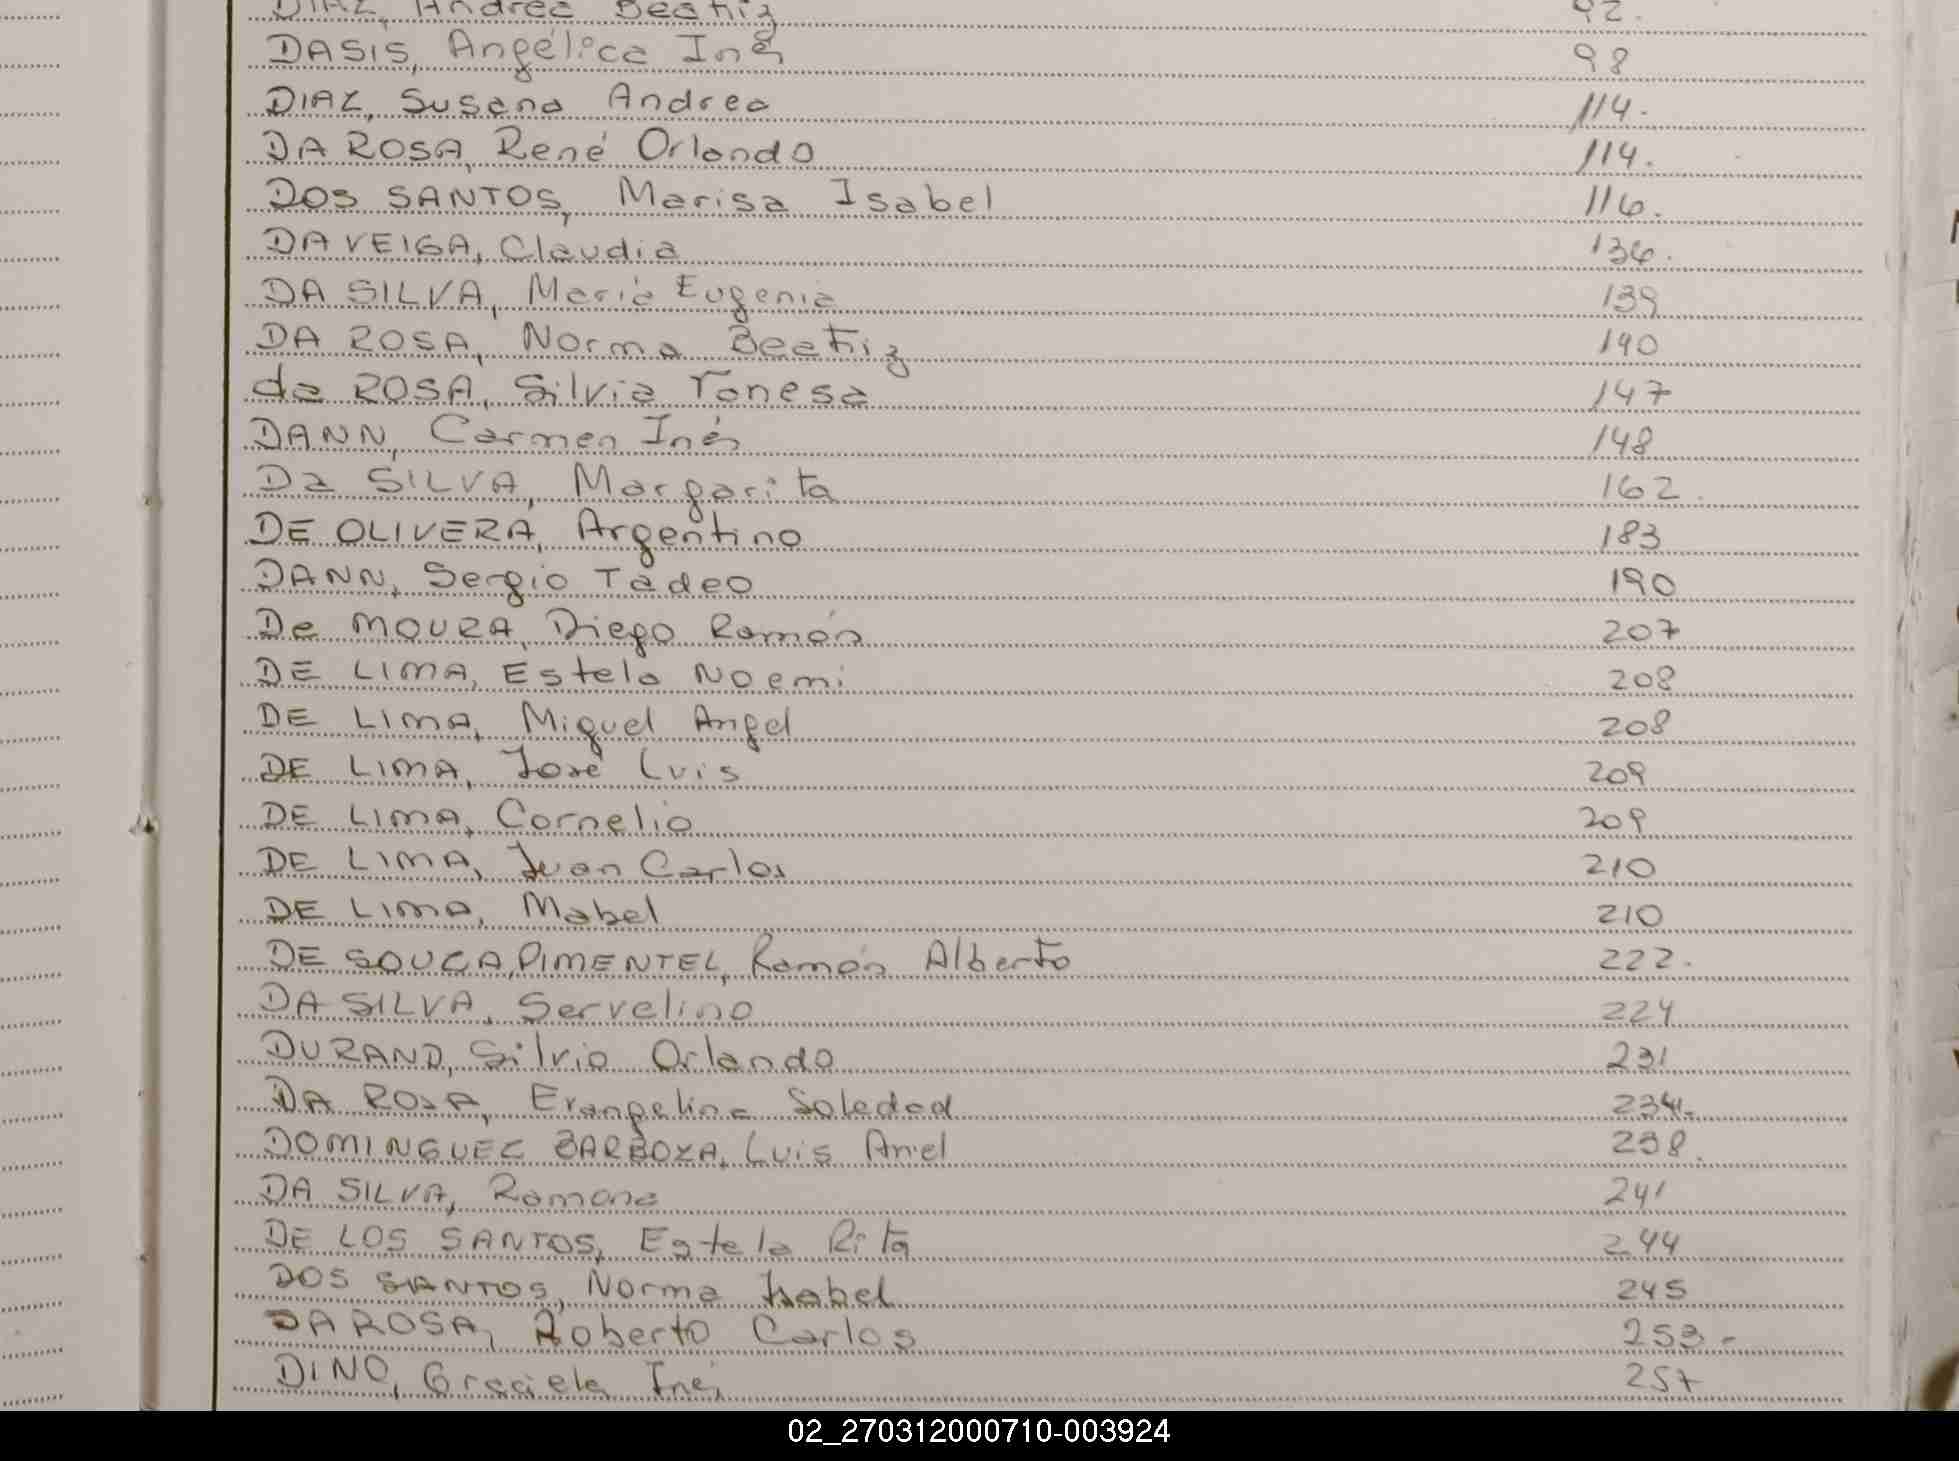 DIAZ, Andrea Beatriz 92.
DASIS, Angélica Inés 98
DIAZ, Susana Andrea 114.
DA ROSA, René Orlando 114.
DOS SANTOS, Marisa Isabel 116.
DA VEIGA, Claudia 136.
DA SILVA, María Eugenia 139
DA ROSA, Norma Beatriz 140
da ROSA, Silvia Vanesa 147
DANN, Carmen Inés 148
Da SILVA, Margarita 162.
DE OLIVERA, Argentino 183
DANN, Sergio Tadeo 190
De MOURA, Diego Ramón 207
DE LIMA, Estela Noemi 208
DE LIMA, Miguel Angel 208
DE LIMA, José Luis 209
DE LIMA, Cornelio 209
DE LIMA, Juan Carlos 210
DE LIMA, Mabel 210
DE SOUZA PIMENTEL, Ramón Alberto 222.
DA SILVA, Servelino 224
DURAND, Silvio Orlando 231
DA ROSA, Evangelina Soledad 234.
DOMINGUEZ BARBOZA, Luis Ariel 238.
DA SILVA, Ramona 241
DE LOS SANTOS, Estela Rita 244
DOS SANTOS, Norma Isabel 245
DA ROSA, Roberto Carlos 253.-
DINO, Graciela Inés 257
02_270312000710-003924